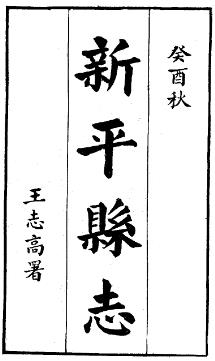 癸酉秋
新平縣志
王志高署